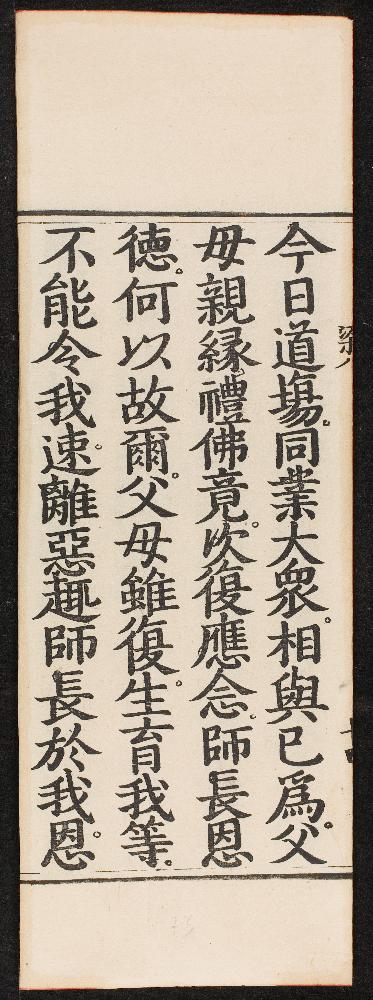 今日道場。同業大衆。相與已爲。父
母親緣。禮佛竟。次復應念。師長恩
德。何以故爾。父母雖復。生育我等。
不能令我。速離惡趣師長於我恩。